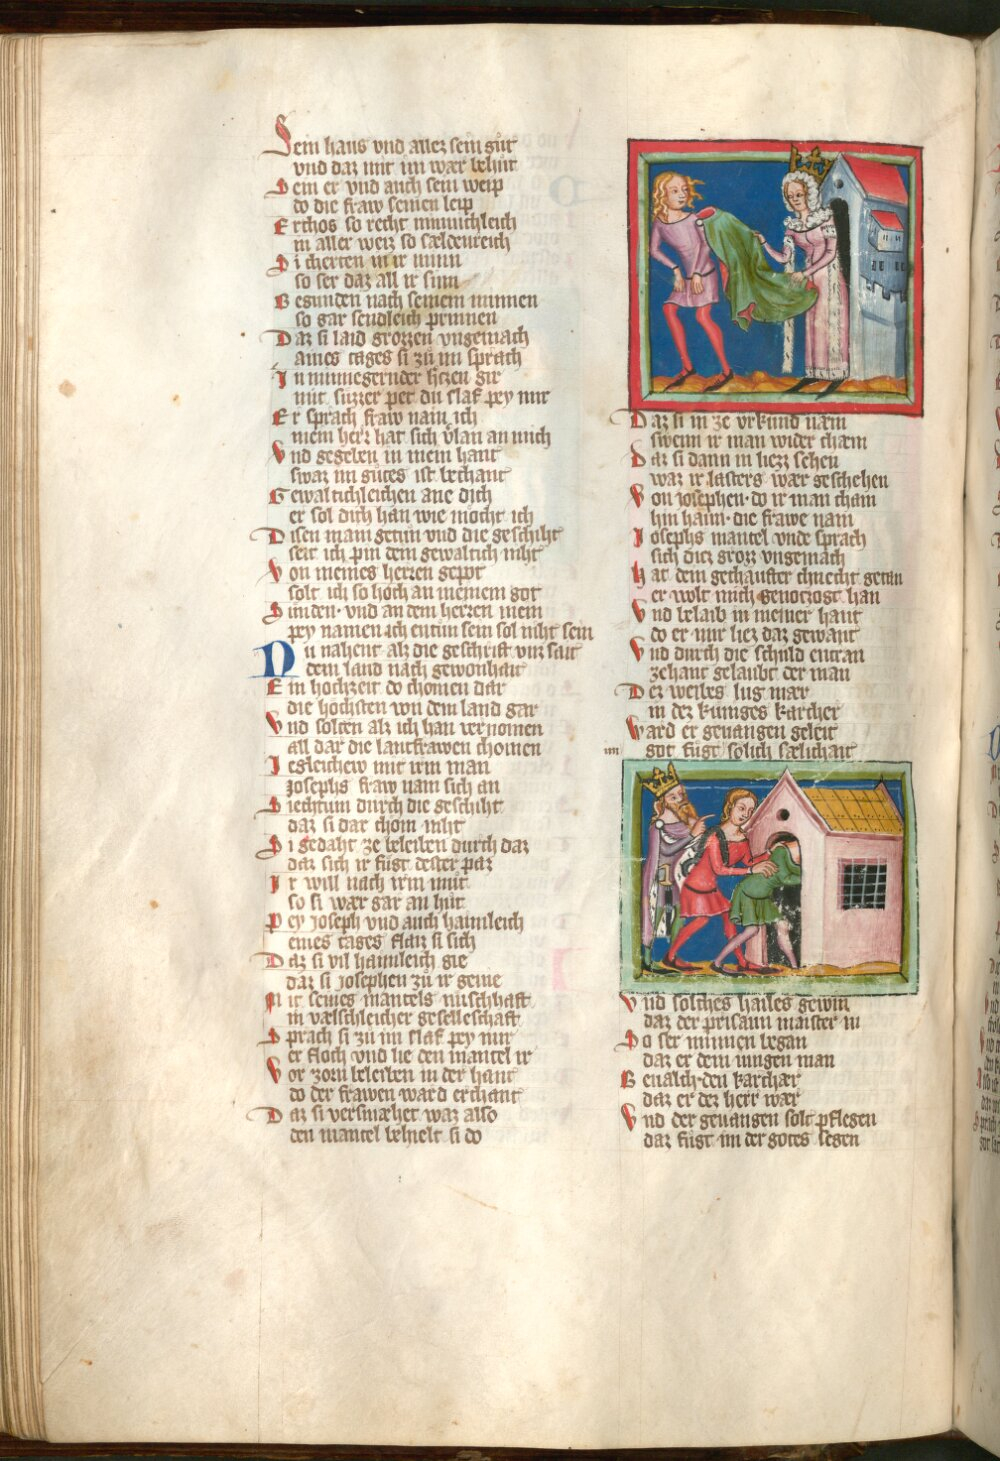 Sein haus vnd allez sein gůt
vnd daz mit im wær behůt
Dem er vnd auch sein weip
do die fraw seinen leip
Erchos so recht minnichleich
in aller weiz so sældenreich
Di cherten in ir minn
so ser daz all ir sinn
Begunden nach seinem minnen
so gar sendleich prinnen
Daz si laid grozzen vngemach
aines tages si zů im sprach
In minnegernder hitzen gir
mit sůzzer pet du slaf pey mir
Er sprach fraw nain ich
mein herr hat sich vlan an mich
Vnd gegeben in mein hant
swaz im gůtes ist bechant
Gewaltichleichen ane dich
er sol dich han wie mocht ich
Disen main getun vnd die geschiht
seit ich pin dem gewaltich niht
Von meines herren gepot
solt ich so hoch an meinem got
Sunden vnd an dem herren mein
pey namen ich entůn sein sol niht sein
Nu nahent alz die geschrift vnz sait
dem land nach gewonhait
Ein hochzeit do chomen dar
die hochsten von dem land gar
Vnd solten alz ich han vernomen
all dar die lantfrawen chomen
Iegleichew mit irm man
Josephs fraw nam sich an
Siechtum durch die geschiht
daz si dar chom niht
Si gedaht ze beleiben durch daz
daz sich ir fůgt dester paz
Ir will nach irm mut
so si wær gar an hůt
Pey Joseph vnd auch haimleich
eines tages flaiz si sich
Daz si vil haimleich gie
daz si Josephen zů ir geuie
Mit seines mantels nuschhaft
in vælschleicher geselleschaft
Sprach si zů im slaf pey mir
er floch vnd lie den mantel ir
Vor zorn beleiben in der hant
do der frawen ward erchant
Daz si versmæhet waz also
den mantel behielt si do
Daz si in ze vrkund næm
swenn ir man wider chæm
Daz si dann in liezz sehen
waz ir lasters wær geschehen
Von Josephen do ir man cham
hin haim die frawe nam
Josephs mantel vnde sprach
sich diez grozz vngemach
Hat dein gechaufter chnecht getan
er wolt mich genotzogt han
Vnd belaib in meiner hant
do er mir liez daz gewant
Vnd durch die schuld entran
zehant gelaubt der man
Dez weibes lug mær
in dez kuniges karcher
Ward er geuangen geleit
im got fůgt solich sælichait
Vnd solches hailes gewin
daz der prisaun maister in
So ser minnen began
daz er dem iungen man
Benalch den karchær
daz er dez herr wær
Vnd der geuangen solt pflegen
daz fůgt im der gotes segen